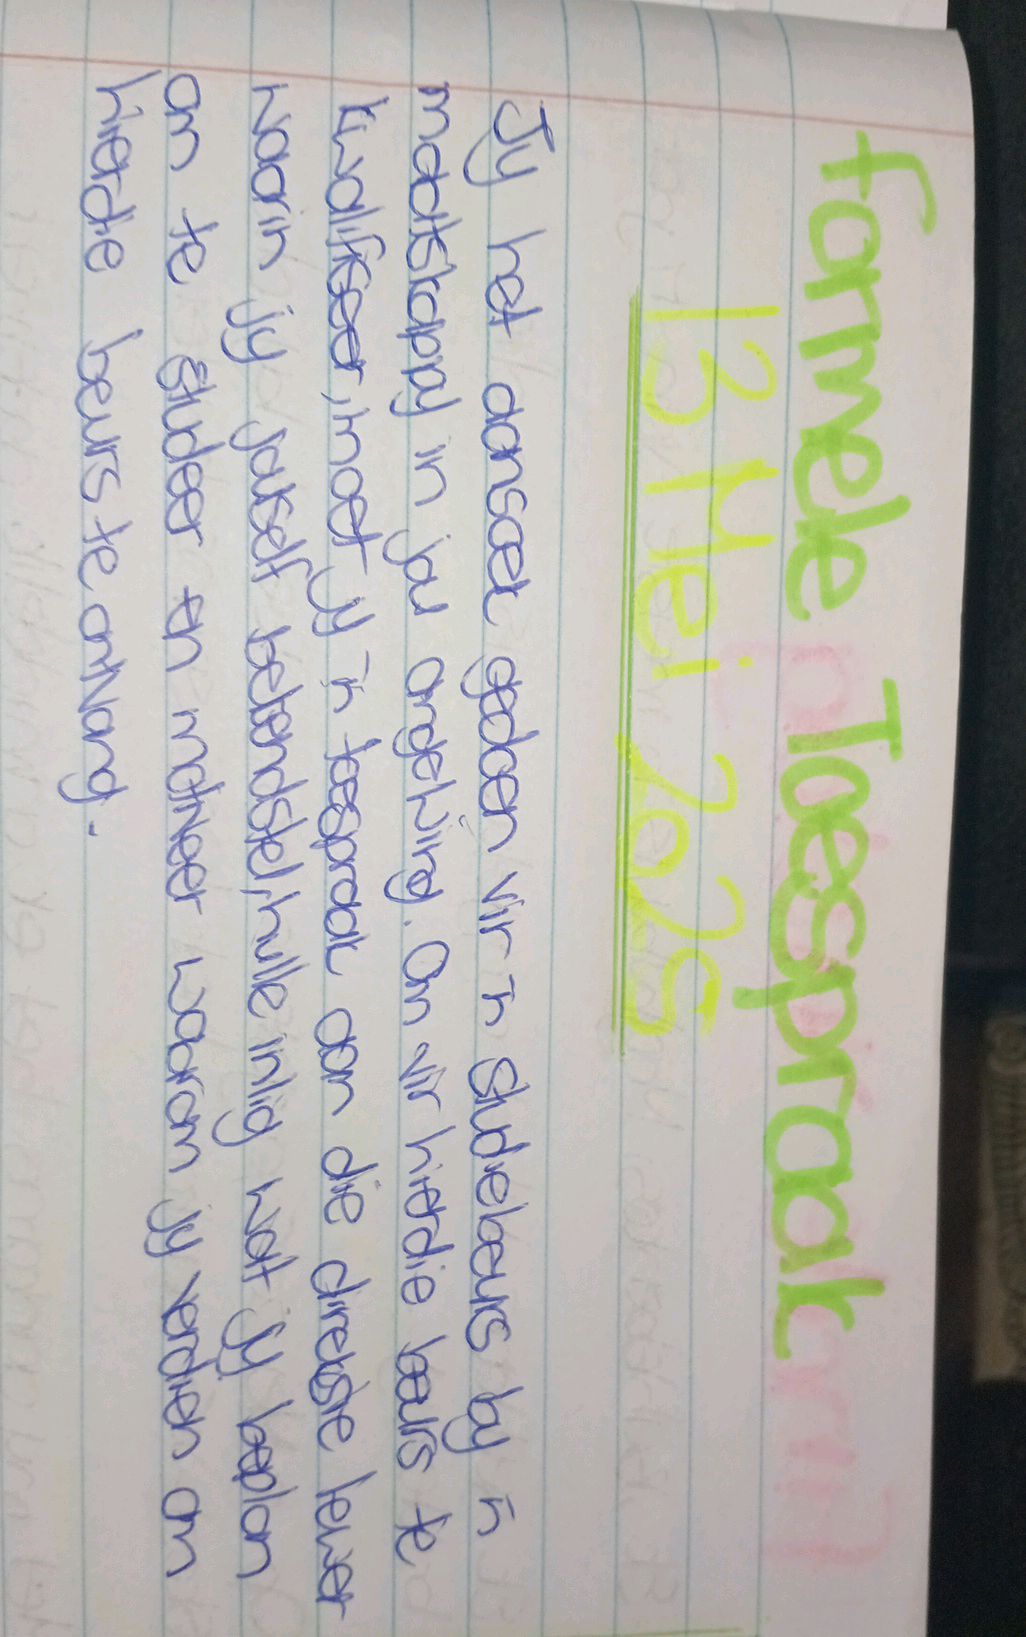 formele Toespraak
13 Mei 2025
Jy het aansoek gedoen vir 'n studiebeurs by 'n
maatskappy in jou omgewing. Om vir hierdie beurs te
kwalifiseer, moet jy 'n toespraak aan die direksie lewer
waarin jy jouself bekendstel, hulle inlig wat jy beplan
om te studeer en motiveer waarom jy verdien om
hierdie beurs te ontvang.